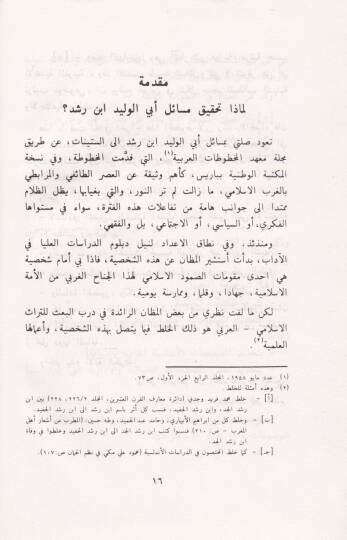 مقدمة
لماذا تحقيق مسائل أبي الوليد ابن رشد؟
تعود صلتي بمسائل أبي الوليد ابن رشد الى الستينات، عن طريق
مجلة معهد المخطوطات العربية(١)، التي قدّمت المخطوطة، وفي نسخة
المكتبة الوطنية بباريس، كأهم وثيقة عن العصر الطائفي والمرابطي
بالغرب الاسلامي، ما زالت لم تر النور، والتي بغيابها، يظل الظلام
ممتدا الى جوانب هامة من تفاعلات هذه الفترة، سواء في مستواها
الفكري، أو السياسي، أو الاجتماعي، بل والفقهي.
ومنذئذ.. وفي نطاق الاعداد لنيل دبلوم الدراسات العليا في
الآداب، بدأت أستشير المظان عن هذه الشخصية، فاذا بي أمام شخصية
هي احدى مقومات الصمود الاسلامي لهذا الجناح الغربي من الأمة
الاسلامية، جهادا، وقلما، وممارسة يومية.
لكن ما لفت نظري من بعض المظان الرائدة في درب البعث للتراث
الاسلامي - العربي هو ذلك الخلط فيما يتصل بهذه الشخصية، وأعمالها
العلمية(٢).
(١) عدد مايو ١٩٥٨، المجلد الرابع الجزء الأول، ص٧٣.
(٢) وهذه أمثلة للخلط.
[أ] - خلط محمد فريد وجدي (دائرة معارف القرن العشرين، المجلد ٢٢٦/٢، ٢٢٨) بين ابن
رشد الجد، وابن رشد الحفيد، فنسب كل آثر باسم ابن رشد الى ابن رشد الحفيد.
[ب] - وخلط كل من ابراهيم الأبياري، وحامد عبد المجيد، وطه حسين: (المطرب من أشعار أهل
المغرب - ص: ٢١٠) فنسبوا كتب ابن رشد الجد الى ابن رشد الحفيد وخلطوا في وفاة
ابن رشد الجد.
[جـ] - كما خلط المختصون في الدراسات الأندلسية (محمود علي مكي في نظم الجمان ص:١٠٧).
١٦